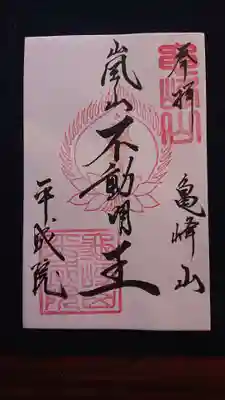 奉拝
亀峰山
嵐山不動明王
平成院